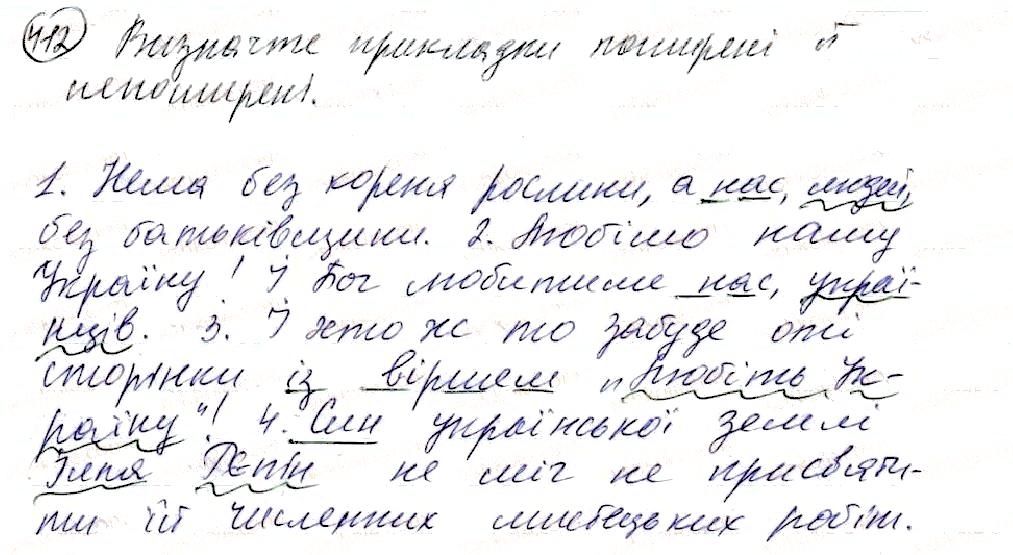 412 Визначте прикладки поширені й
непоширені.
1. Нема без кореня рослини, а нас, людей,
без батьківщини. 2. Любімо нашу
Україну! І Бог любитиме нас, украї-
нців. 3. І хто ж то забуде оті
сторінки із віршем "Любіть Ук-
раїну"! 4. Син української землі
Ілля Рєпін не міг не присвяти-
ти їй численних мистецьких робіт.